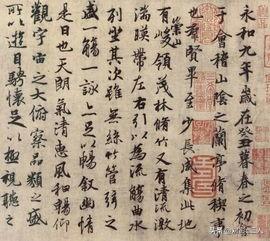 永和九年歲在癸丑暮春之初
于會稽山陰之蘭亭脩稧事
也群賢畢至少長咸集此地
有崇山峻領茂林脩竹又有清流激
湍暎帶左右引以為流觴曲水
列坐其次雖無絲竹管弦之
盛一觴一詠亦足以暢敘幽情
是日也天朗氣清惠風和暢仰
觀宇宙之大俯察品類之盛
所以遊目騁懷足以極視聽之
头条